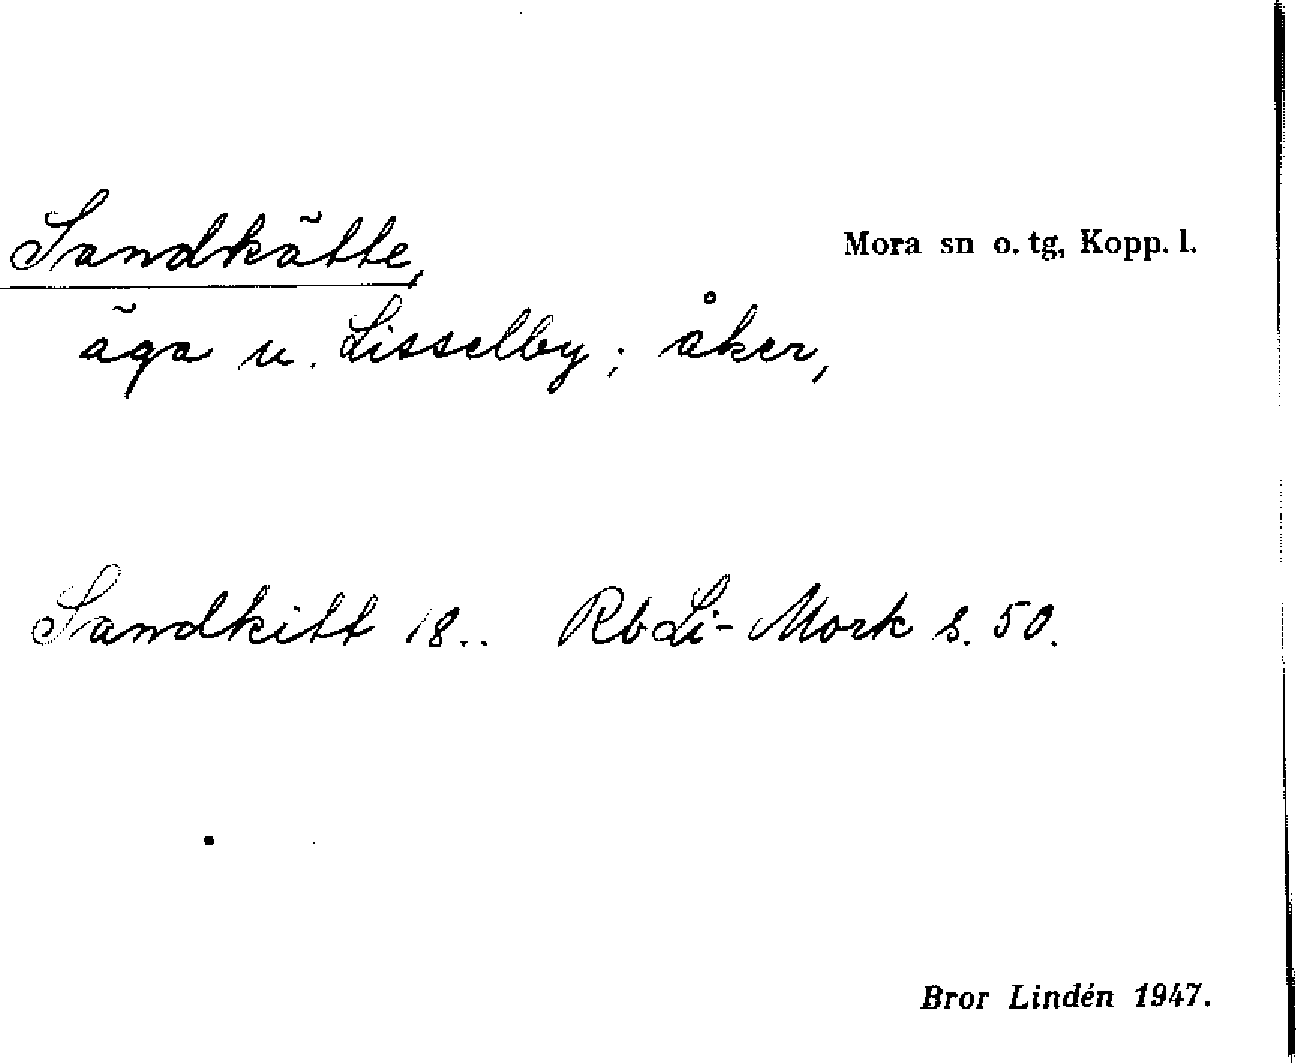 Sandkätte,
Mora sn o. tg, Kopp. l.
äga u. Lisselby; åker,
Sandkitt 18.. Rb Li-Mork s. 50.
Bror Lindén 1947.